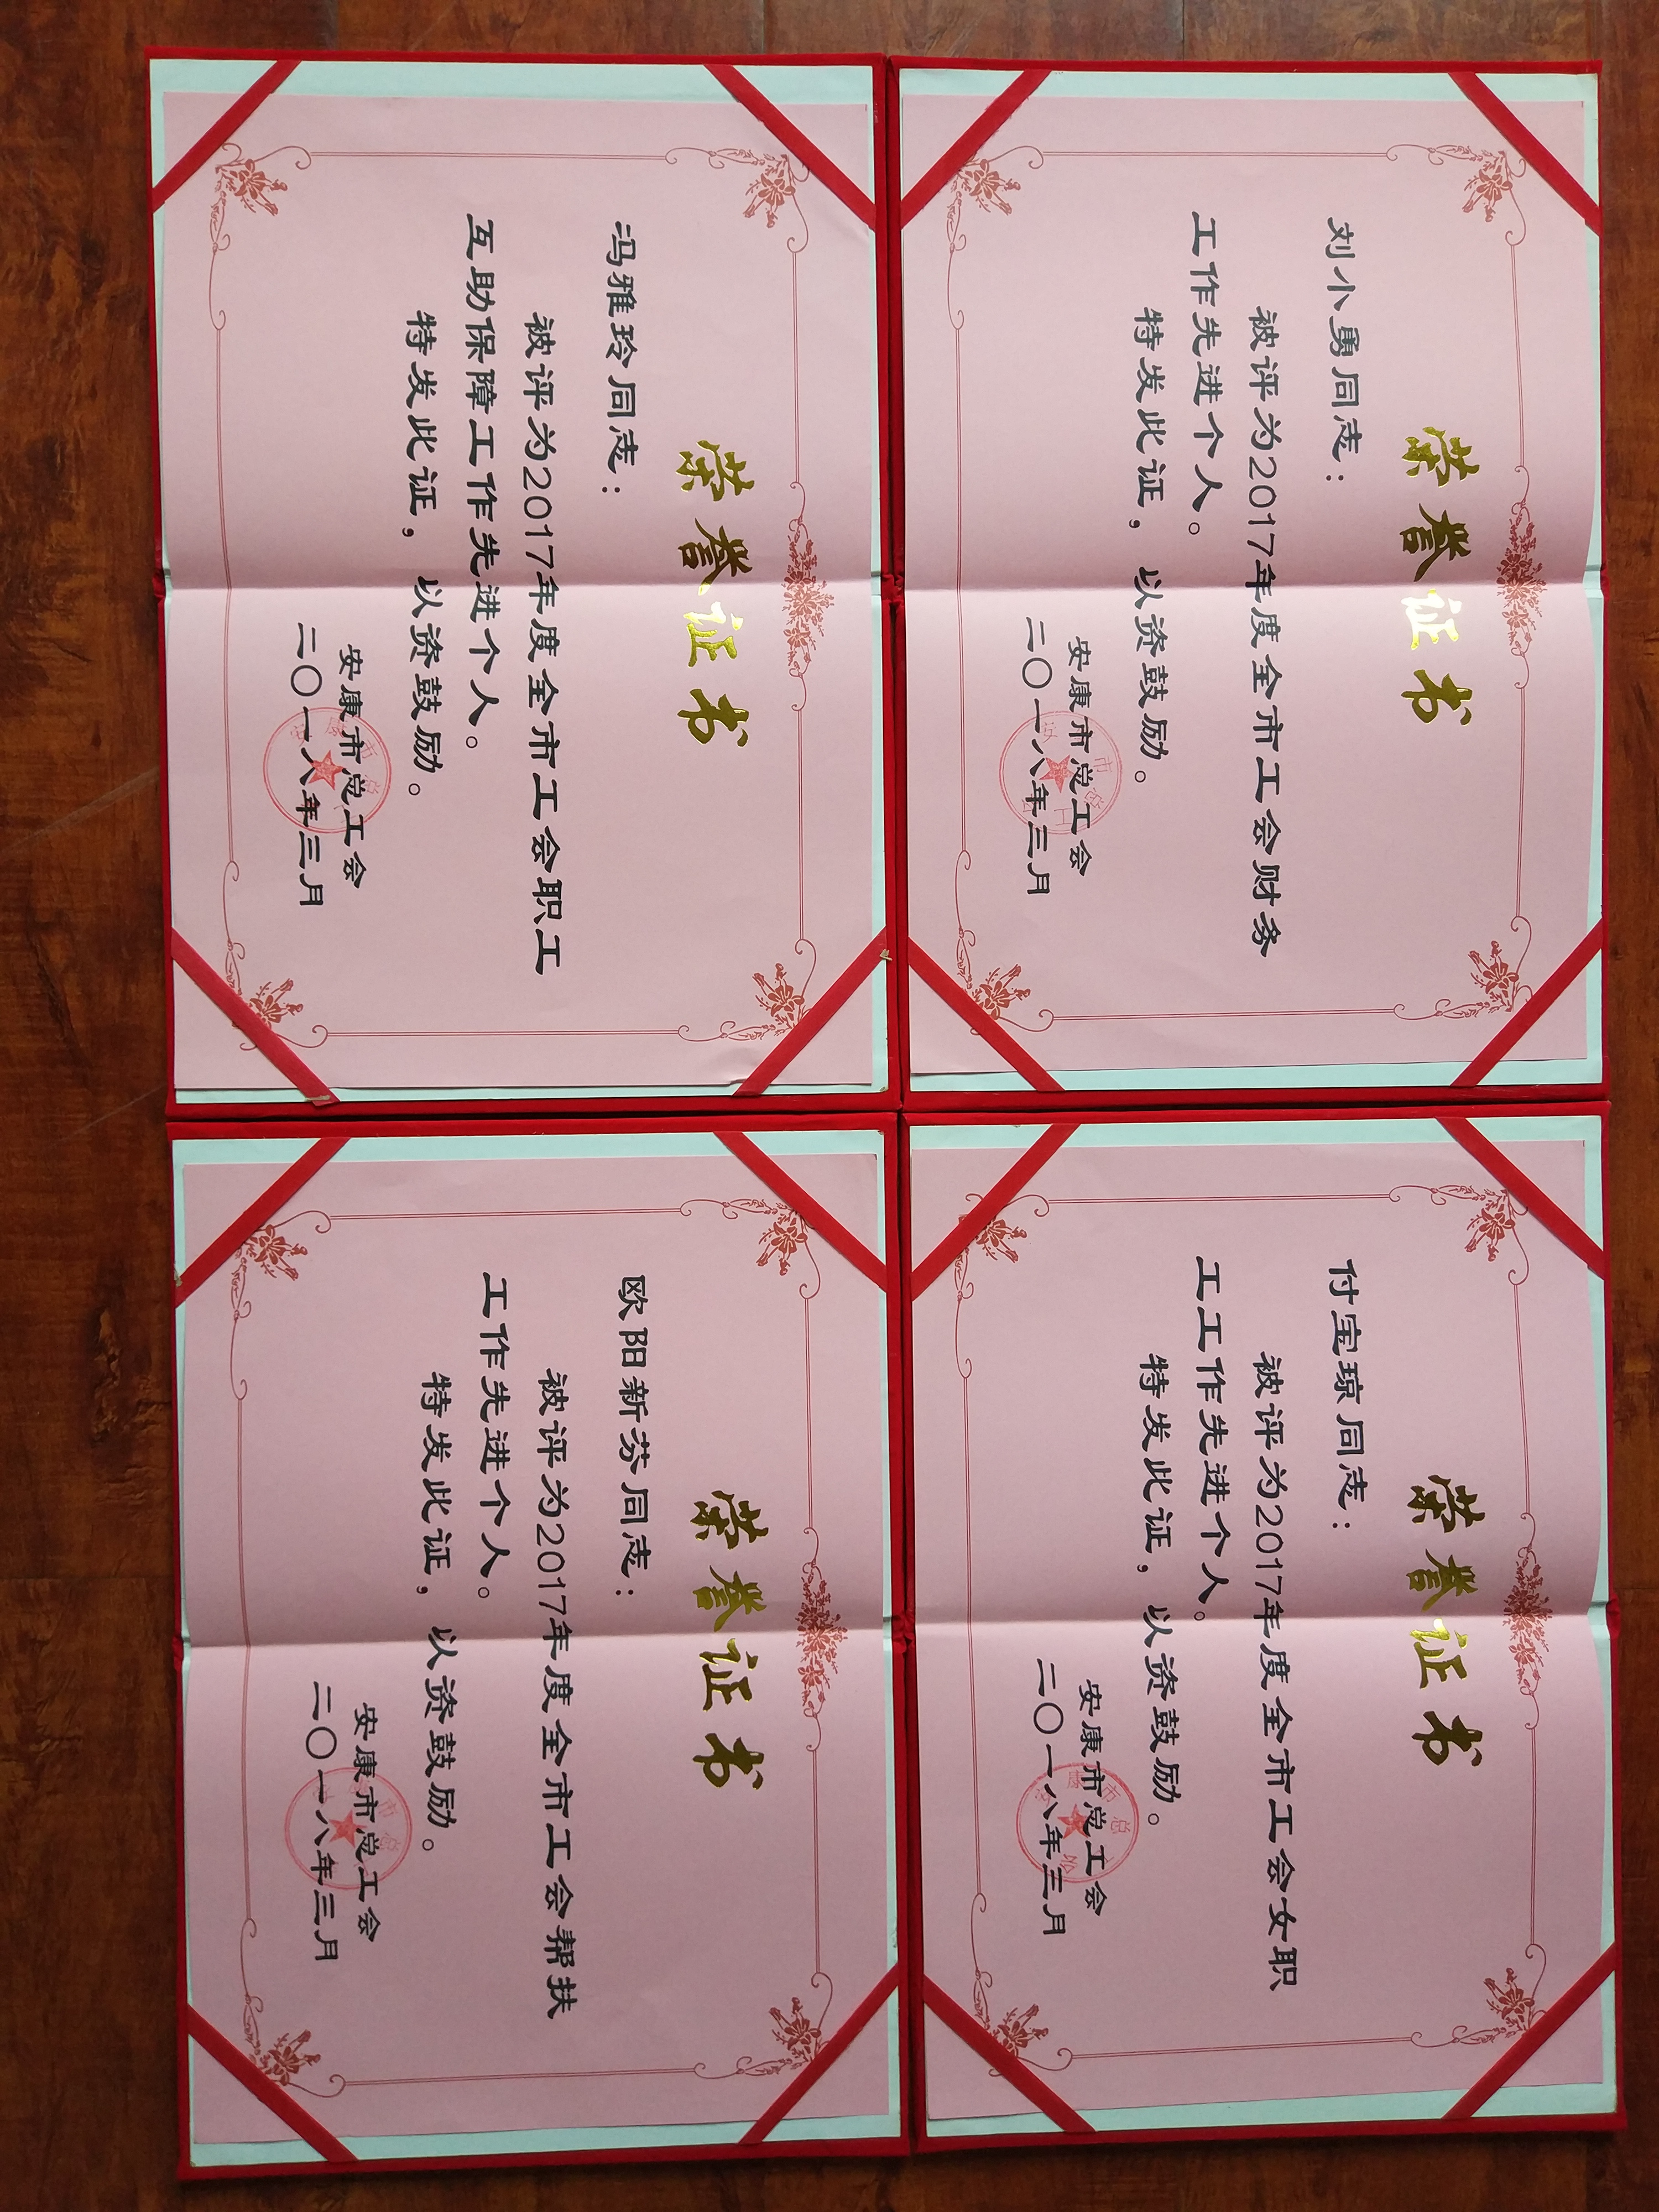 荣誉证书
刘小勇同志：
被评为2017年度全市工会财务
工作先进个人。
特发此证，以资鼓励。
安康市总工会
二〇一八年三月
荣誉证书
付宝琼同志：
被评为2017年度全市工会女职
工工作先进个人。
特发此证，以资鼓励。
安康市总工会
二〇一八年三月
荣誉证书
冯雅玲同志：
被评为2017年度全市工会职工
互助保障工作先进个人。
特发此证，以资鼓励。
安康市总工会
二〇一八年三月
荣誉证书
欧阳新芬同志：
被评为2017年度全市工会帮扶
工作先进个人。
特发此证，以资鼓励。
安康市总工会
二〇一八年三月